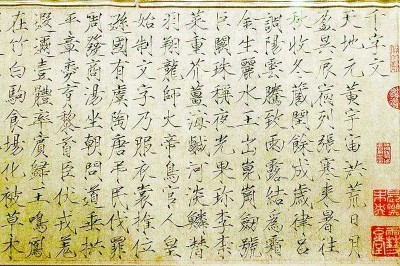 千字文
天地元黄宇宙洪荒日月
盈昃辰宿列張寒来暑往
秋收冬蔵閏餘成歲律吕
調陽雲騰致雨露結為霜
金生麗水玉出崑崗劔號
巨闕珠稱夜光果珎李柰
菜重芥薑海鹹河淡鱗潜
羽翔龍師火帝鳥官人皇
始制文字乃服衣裳推位
遜國有虞陶唐弔民伐罪
周發商湯坐朝問道垂拱
平章愛育黎首臣伏戎羌
遐邇壹體率賓歸王鳴鳳
在竹白駒食場化被草木